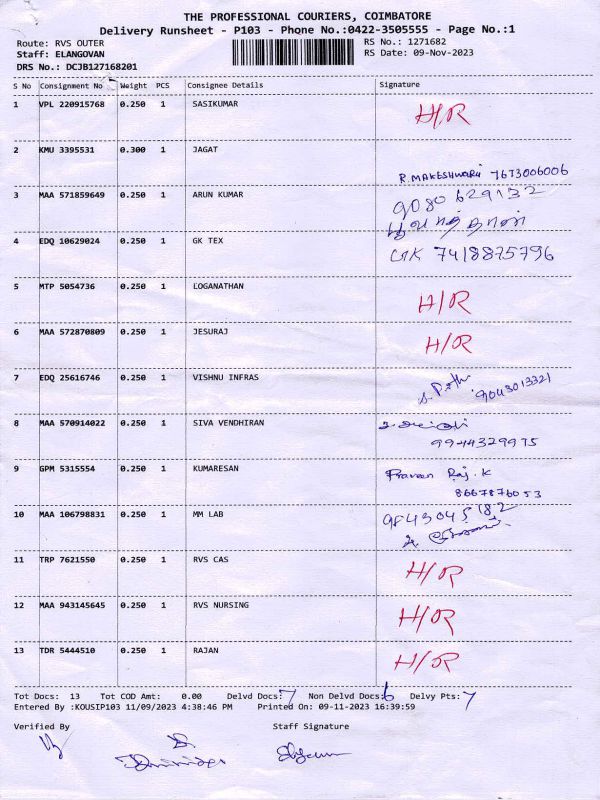 THE PROFESSIONAL COURIERS, COIMBATORE
Delivery Runsheet - P103 - Phone No.:0422-3505555 - Page No.:1
Route: RVS OUTER RS No.: 1271682
Staff: ELANGOVAN RS Date: 09-Nov-2023
DRS No.: DCJB127168201
S No Consignment No Weight PCS Consignee Details Signature
1 VPL 220915768 0.250 1 SASIKUMAR H/R
2 KMU 3395531 0.300 1 JAGAT
R. MAKESHWARI 7673006006
3 MAA 571859649 0.250 1 ARUN KUMAR 9080629132
4 EDQ 10629024 0.250 1 GK TEX GK 7418875796
5 MTP 5054736 0.250 1 LOGANATHAN H/R
6 MAA 572870809 0.250 1 JESURAJ H/R
7 EDQ 25616746 0.250 1 VISHNU INFRAS 9043013321
8 MAA 570914022 0.250 1 SIVA VENDHIRAN
9944329975
9 GPM 5315554 0.250 1 KUMARESAN Praveen Raj. K
8667876053
10 MAA 106798831 0.250 1 MM LAB 9843045182
11 TRP 7621550 0.250 1 RVS CAS H/R
12 MAA 943145645 0.250 1 RVS NURSING H/R
13 TDR 5444510 0.250 1 RAJAN H/R
Tot Docs: 13 Tot COD Amt: 0.00 Delvd Docs: 7 Non Delvd Docs: 6 Delvy Pts: 7
Entered By :KOUSIP103 11/09/2023 4:38:46 PM Printed On: 09-11-2023 16:39:59
Verified By Staff Signature